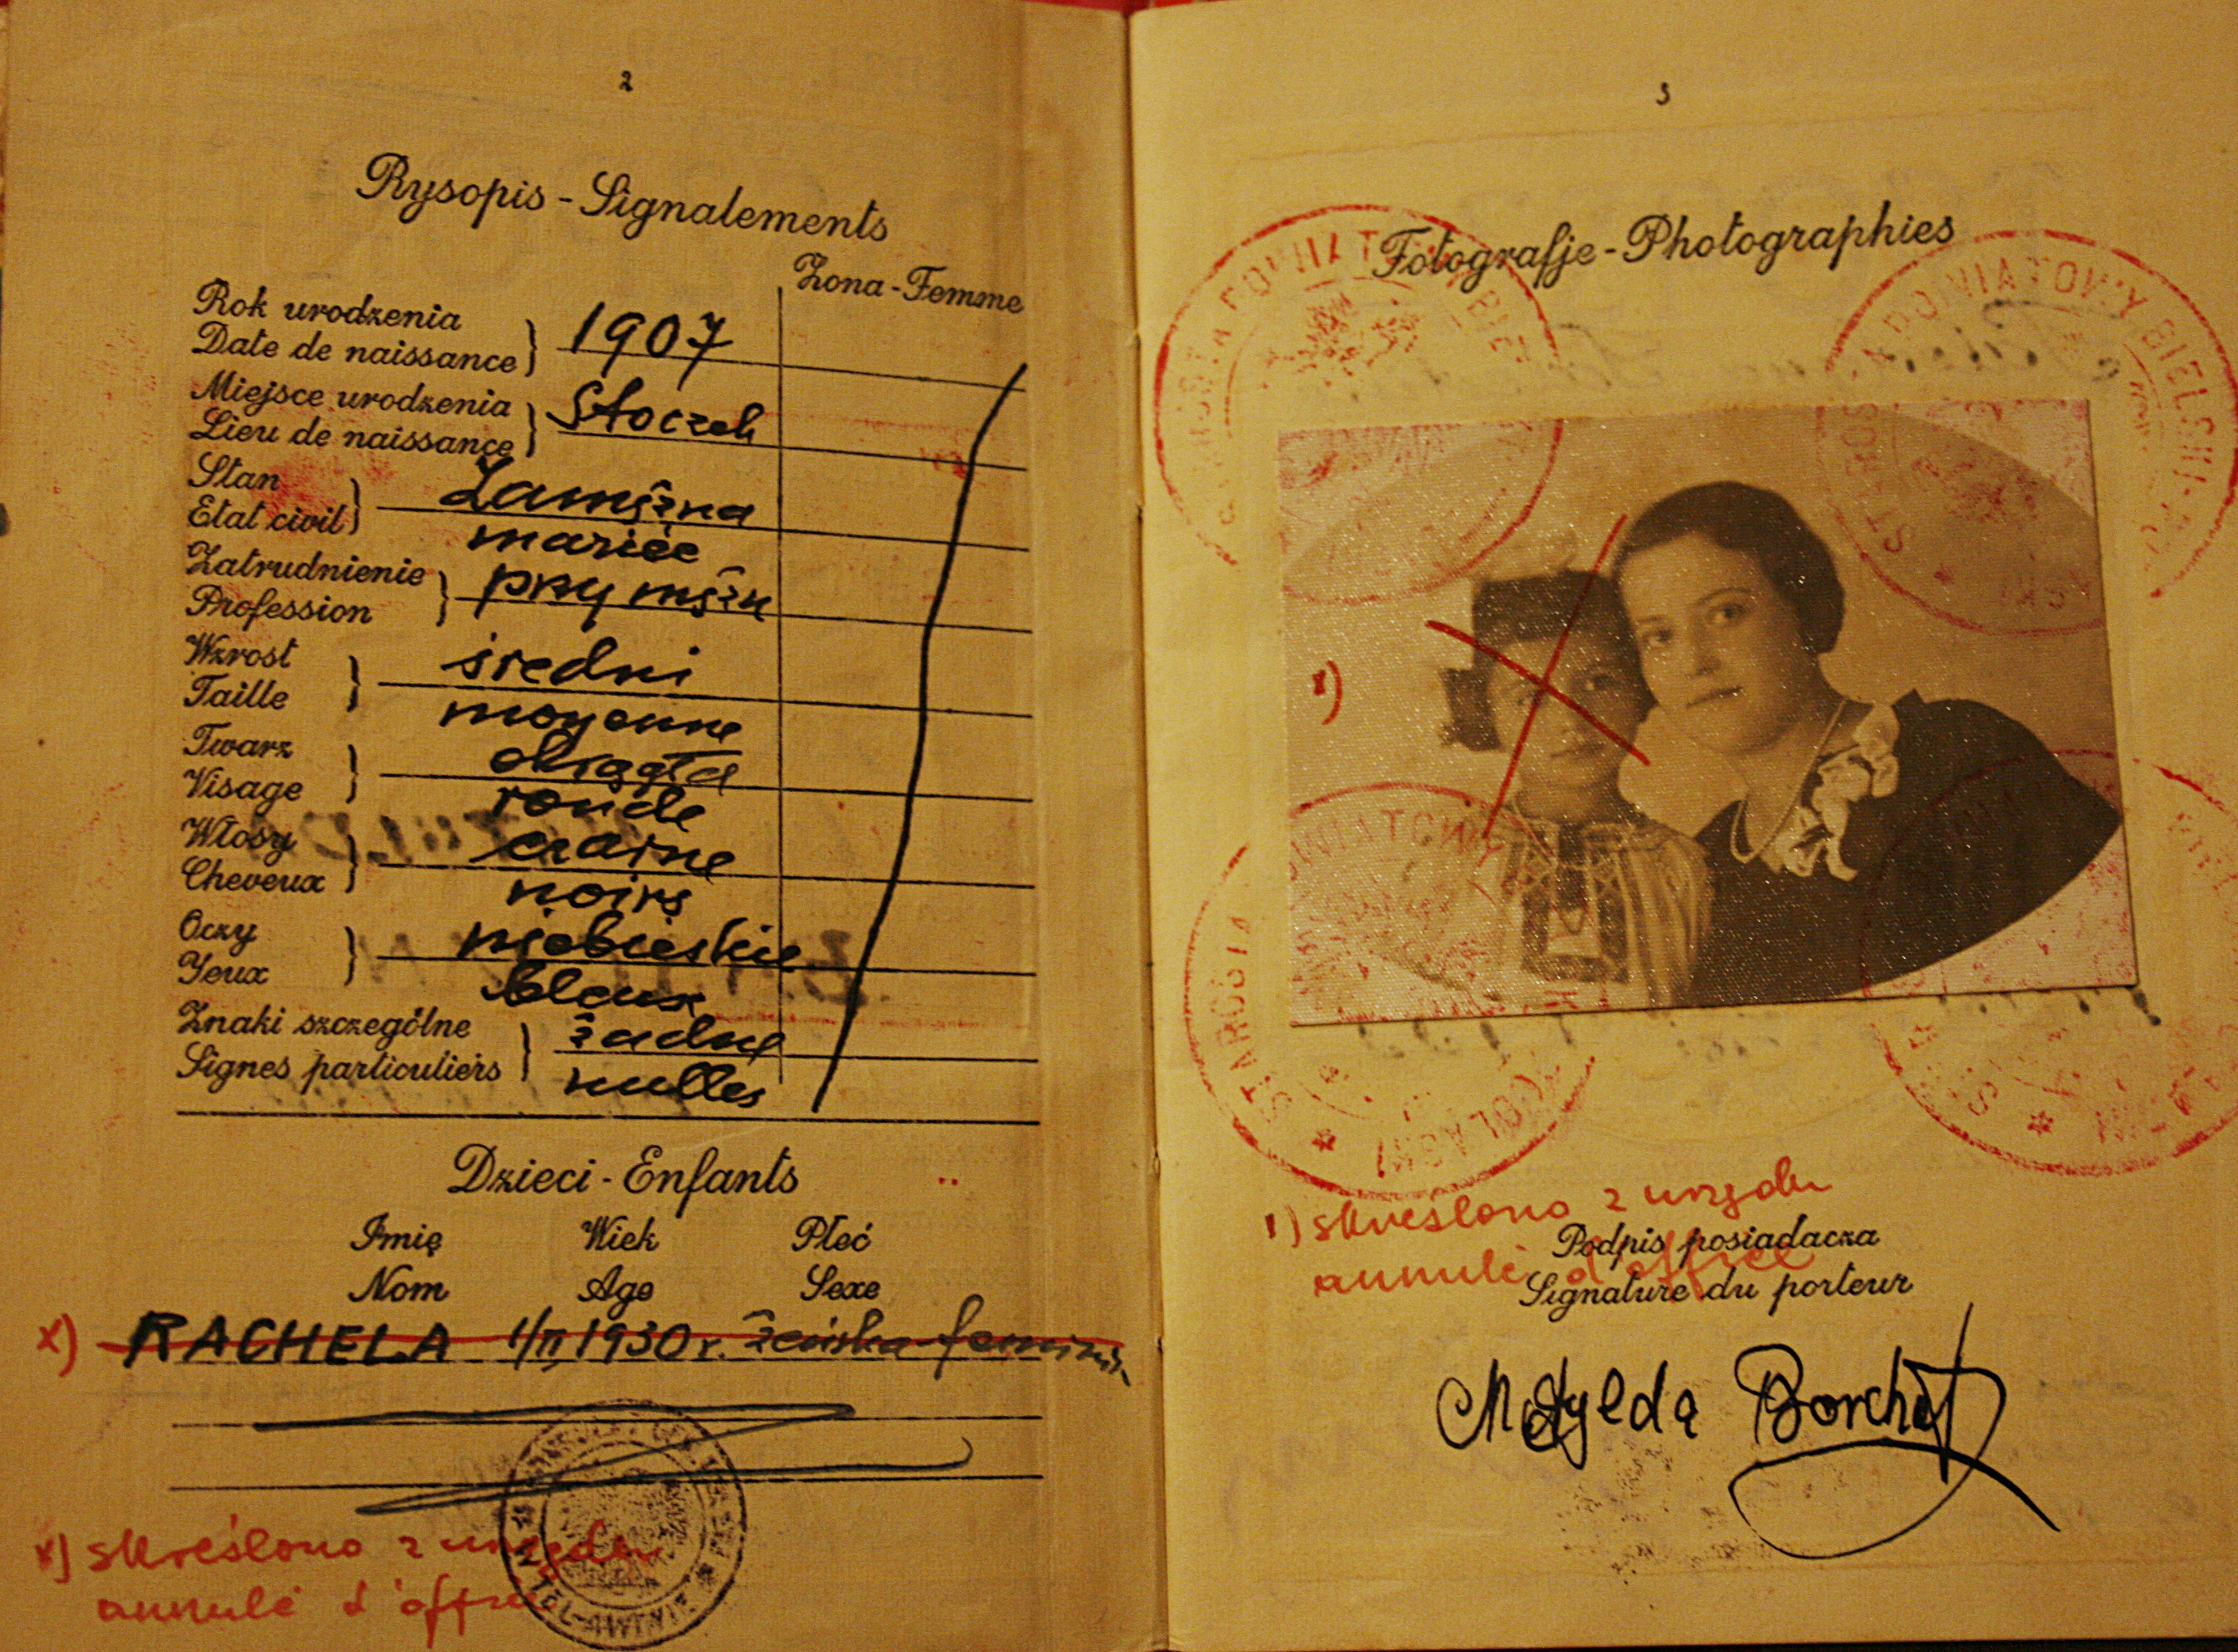 2
Rysopis - Signalements
Żona - Femme
Rok urodzenia
Date de naissance
1907
Miejsce urodzenia
Lieu de naissance
Stoczek
Stan
Etat civil
Zamężna
mariée
Zatrudnienie
Profession
przy mężu
Wzrost
Taille
średni
moyenne
Twarz
Visage
okrągła
ronde
Włosy
Cheveux
czarne
noirs
Oczy
Yeux
niebieskie
bleux
Znaki szczególne
Signes particuliers
żadne
nulles
Dzieci - Enfants
Imię Wiek Płeć
Nom Age Sexe
x) RACHELA 1/II 1930 r. żeńska - feminin
x) skreślono z urzędu
annulé d'office
TEL-AWIWIE
3
Fotografje - Photographies
STAROSTA POWIATOWY BIELSKI
STAROSTA POWIATOWY BIELSKI
x)
STAROSTA POWIATOWY
1) skreślono z urzędu
annulé d'office
Podpis posiadacza
Signature du porteur
Matylda Borchat